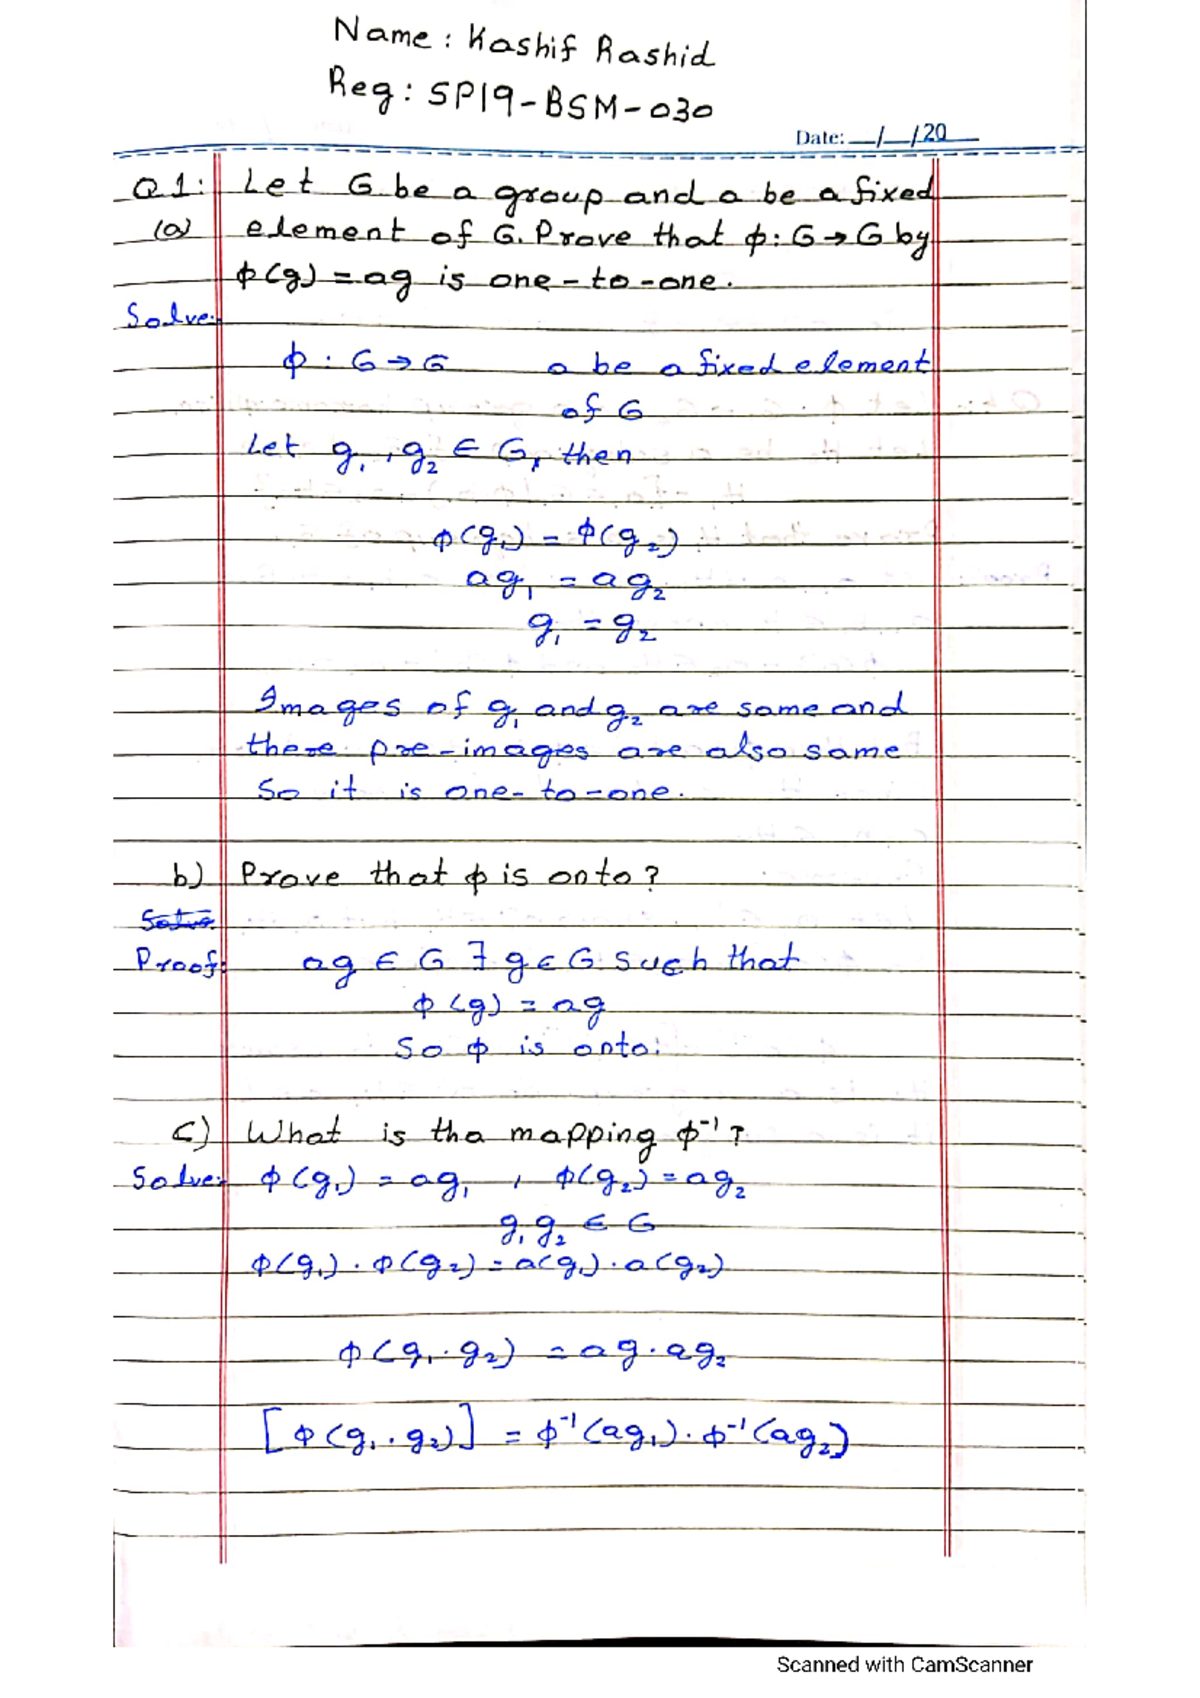 Name: Kashif Rashid
Reg: SP19-BSM-030
Date: __/__/20__
Q1: Let G be a group and a be a fixed
(a) element of G. Prove that ϕ: G → G by
ϕ(g) = ag is one-to-one.
Solve:
ϕ : G → G a be a fixed element
of G
Let g₁, g₂ ∈ G, then
ϕ(g₁) = ϕ(g₂)
ag₁ = ag₂
g₁ = g₂
Images of g₁ and g₂ are same and
there pre-images are also same
So it is one-to-one.
b) Prove that ϕ is onto?
Solve
Proof: ag ∈ G ∃ g ∈ G such that
ϕ(g) = ag
So ϕ is onto:
c) What is tha mapping ϕ⁻¹?
Solve: ϕ(g₁) = ag₁ , ϕ(g₂) = ag₂
g₁ g₂ ∈ G
ϕ(g₁) . ϕ(g₂) = a(g₁) . a(g₂)
ϕ(g₁ . g₂) = ag . ag₂
[ϕ(g₁ . g₂)] = ϕ⁻¹(ag₁) . ϕ⁻¹(ag₂)
Scanned with CamScanner